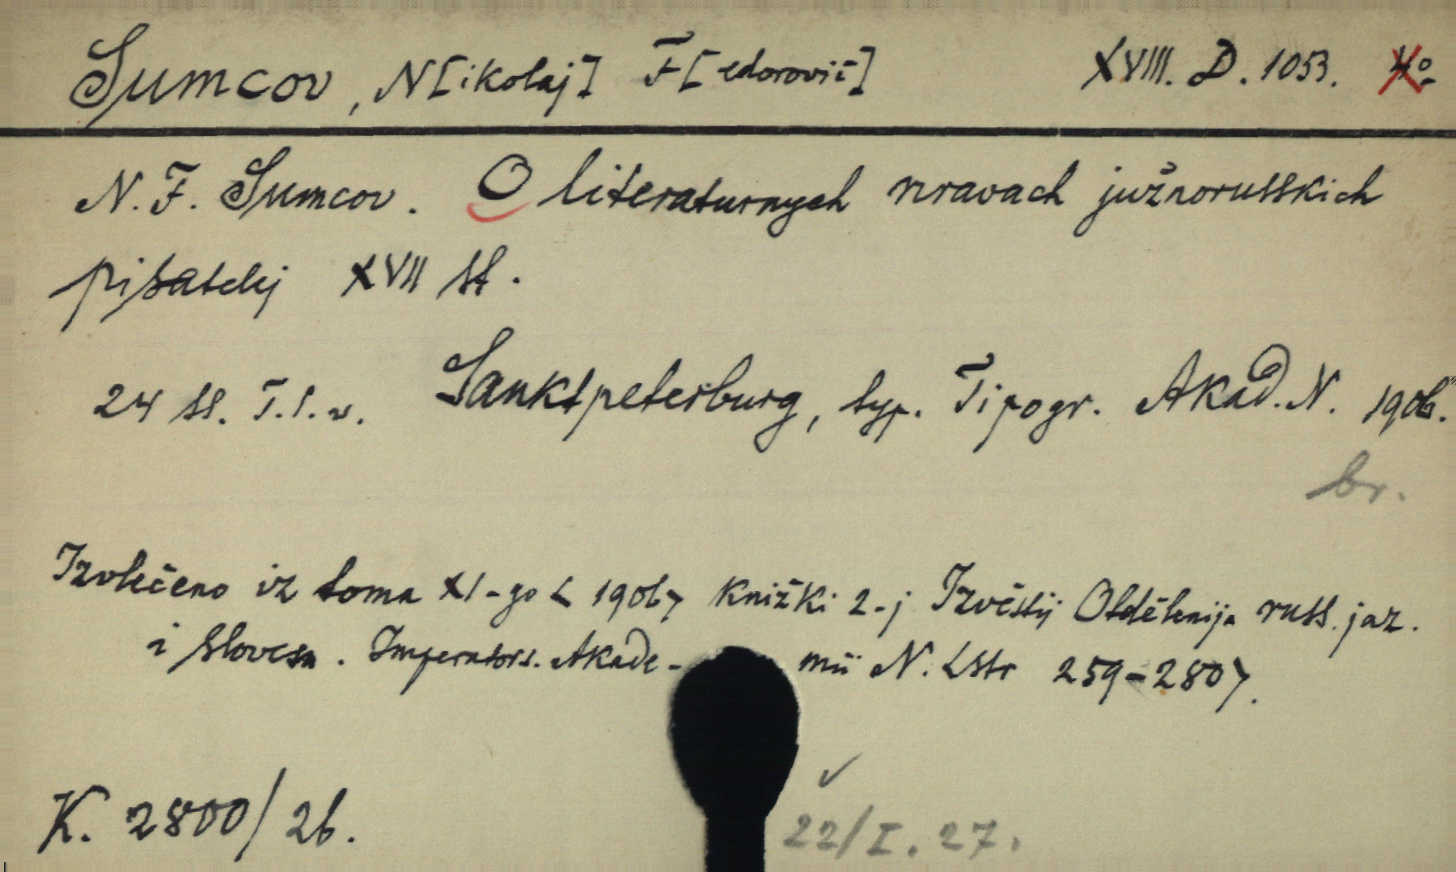 Sumcov, N[ikolaj] F[edorovič] XVIII. D. 1053. 4º
N. F. Sumcov. O literaturnych nravach južnorusskich
pisatelej XVII st.
24 ss. T. l. v. Sanktpeterburg, typ. Tipogr. Akad. N. 1906.
br.
Izvlečeno iz toma XI-go < 1906> knižki 2-j Izvěstij Otdělenija russ. jaz.
i slovesn. Imperators. Akade- mii N. <str 259-280>.
K. 2800/26.
22/I. 27.